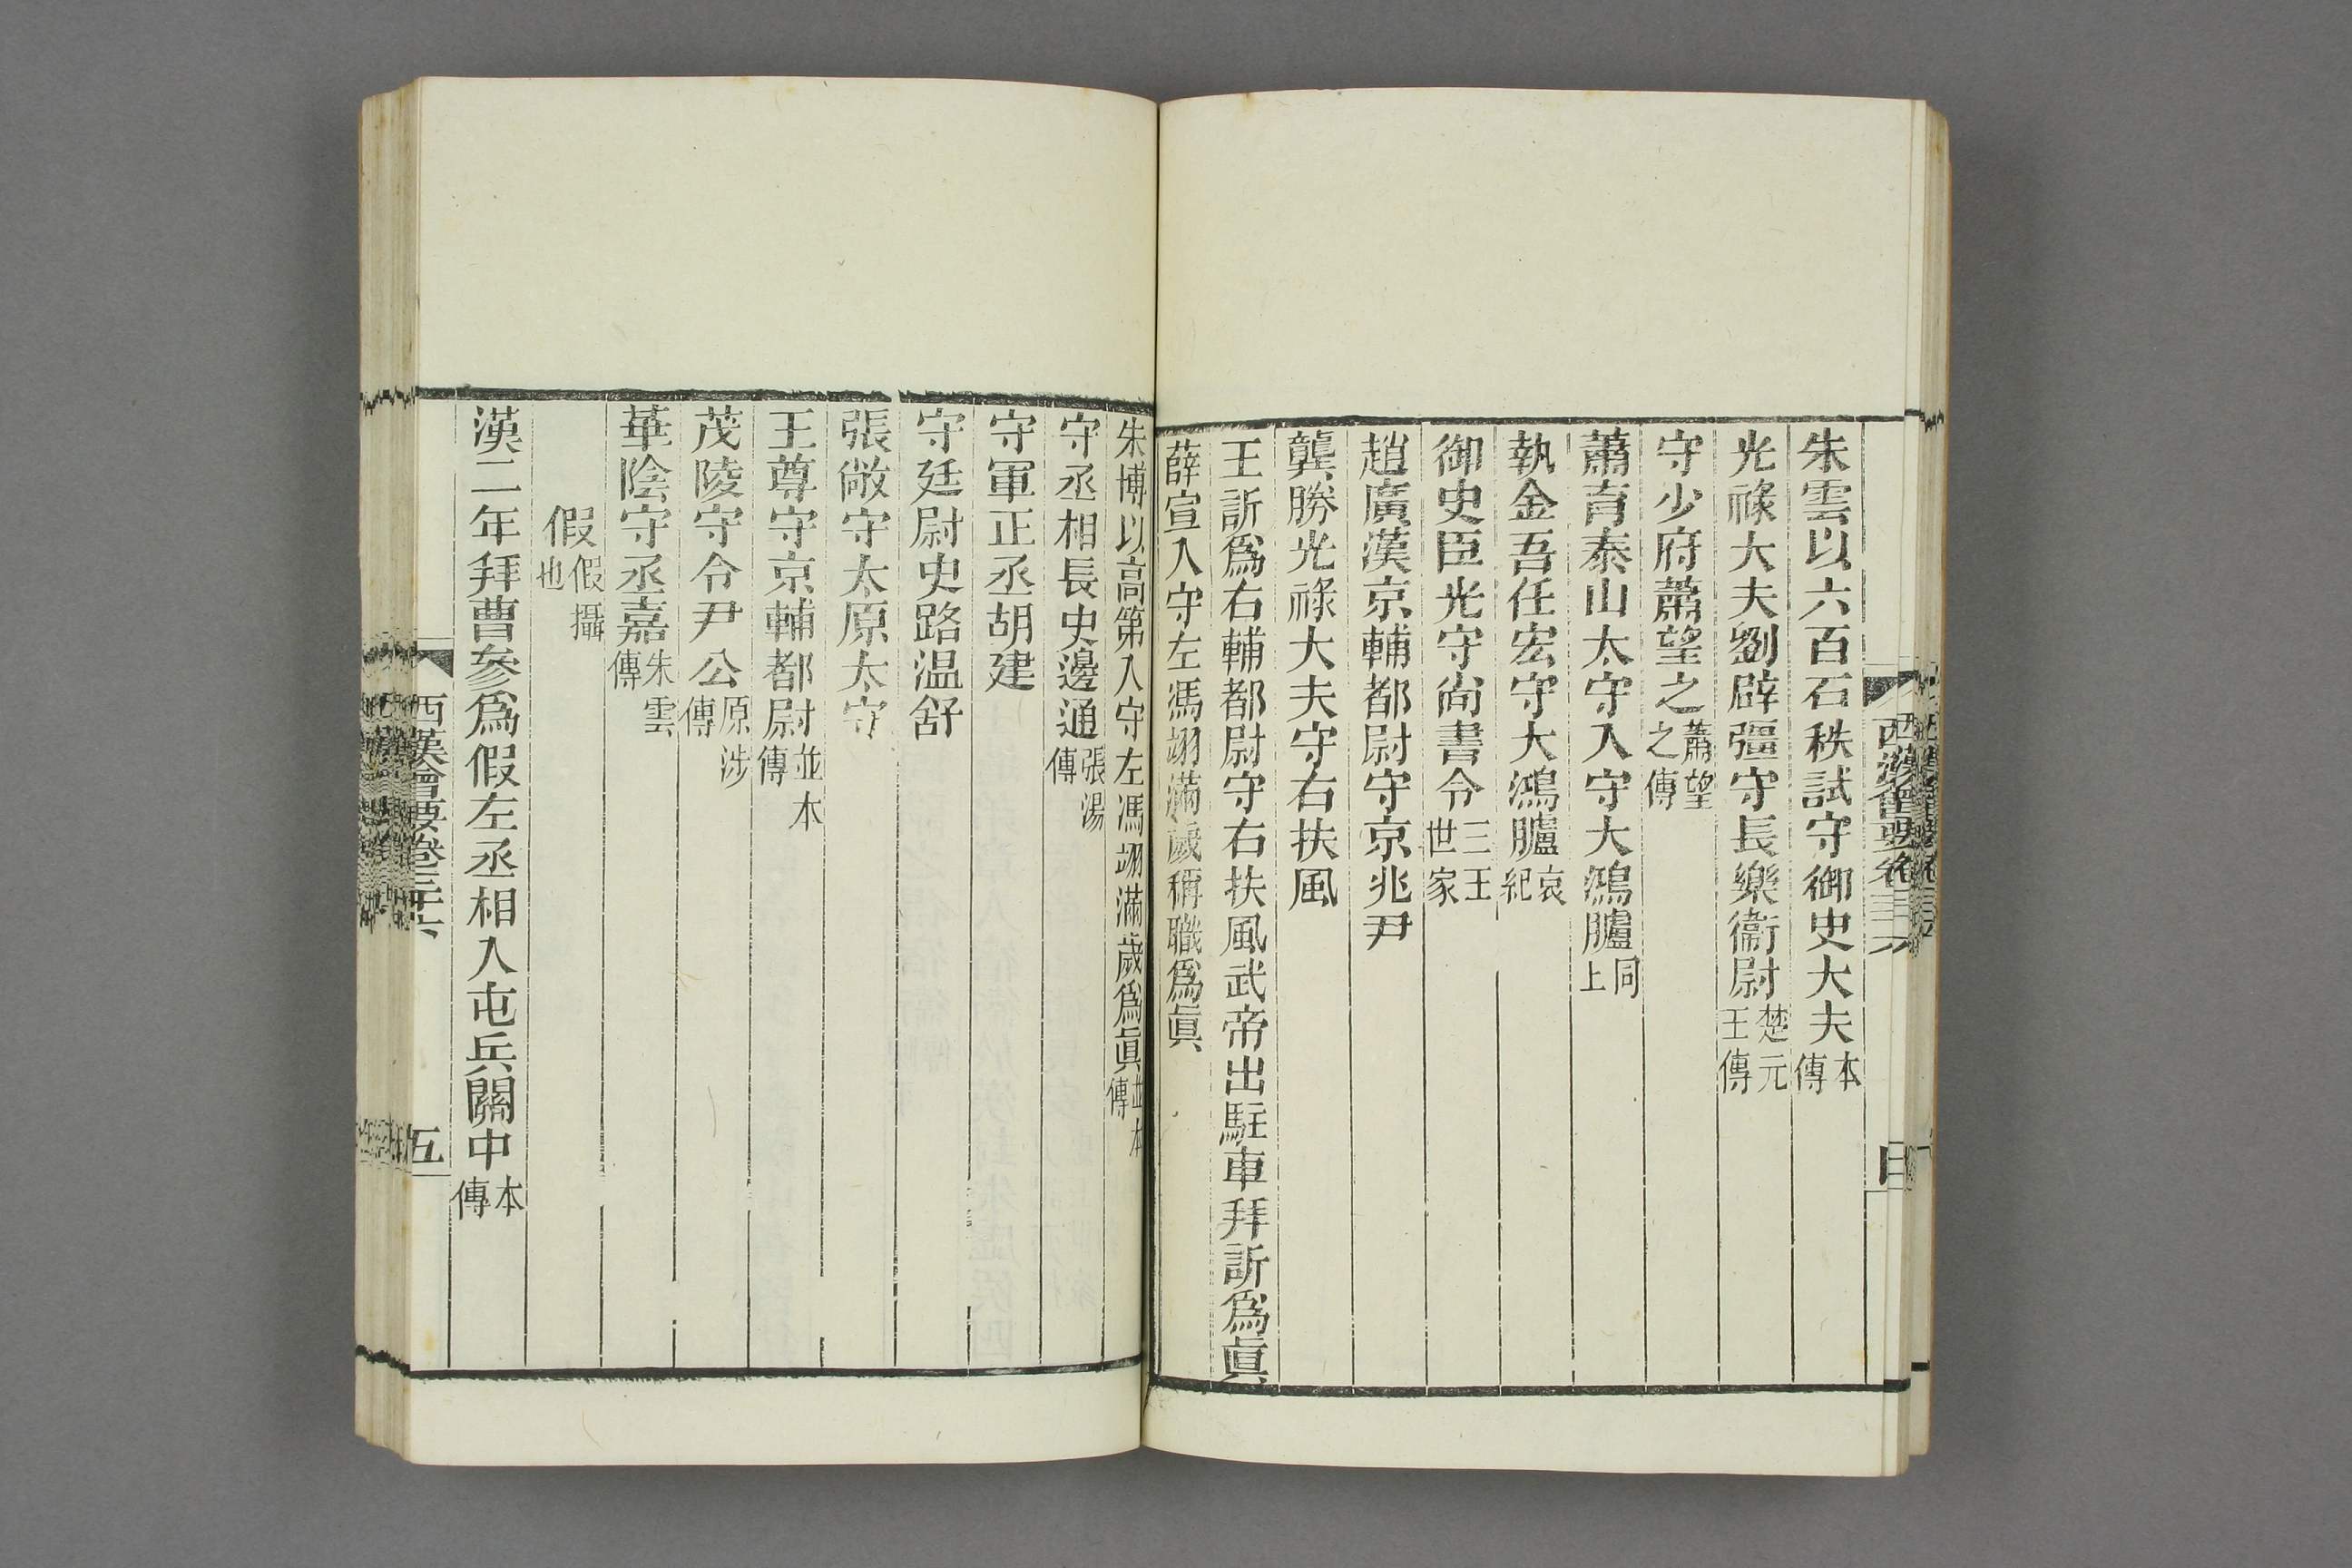 朱雲以六百石秩試守御史大夫本傳
光祿大夫劉辟彊守長樂衞尉楚元王傳
守少府蕭望之蕭望之傳
蕭育泰山太守入守大鴻臚同上
執金吾任宏守大鴻臚哀紀
御史臣光守尚書令三王世家
趙廣漢京輔都尉守京兆尹
龔勝光祿大夫守右扶風
王訢爲右輔都尉守右扶風武帝出駐車拜訢爲眞
薛宣入守左馮翊滿歲稱職爲眞
朱博以高第入守左馮翊滿歲爲眞並本傳
守丞相長史邊通張湯傳
守軍正丞胡建
守廷尉史路温舒
張敞守太原太守
王尊守京輔都尉並本傳
茂陵守令尹公原涉傳
華陰守丞嘉朱雲傳
假假攝也
漢二年拜曹參爲假左丞相入屯兵關中本傳
西漢會要卷三十六
五